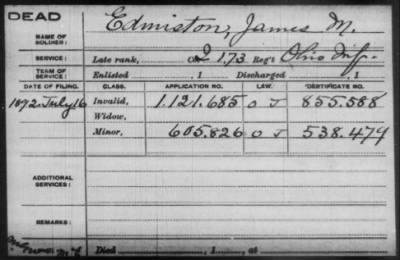 DEAD
NAME OF SOLDIER: Edmiston, James M.
SERVICE: Late rank, Co 2 173 Reg't Ohio Inf.
TERM OF SERVICE: Enlisted , 1 Discharged , 1
DATE OF FILING. CLASS. APPLICATION NO. LAW. CERTIFICATE NO.
1892 July 16 Invalid, 1.121.685 O J 855.588
Widow,
Minor, 605.826 O J 538.479
ADDITIONAL SERVICES:
REMARKS:
Died , 1 , at